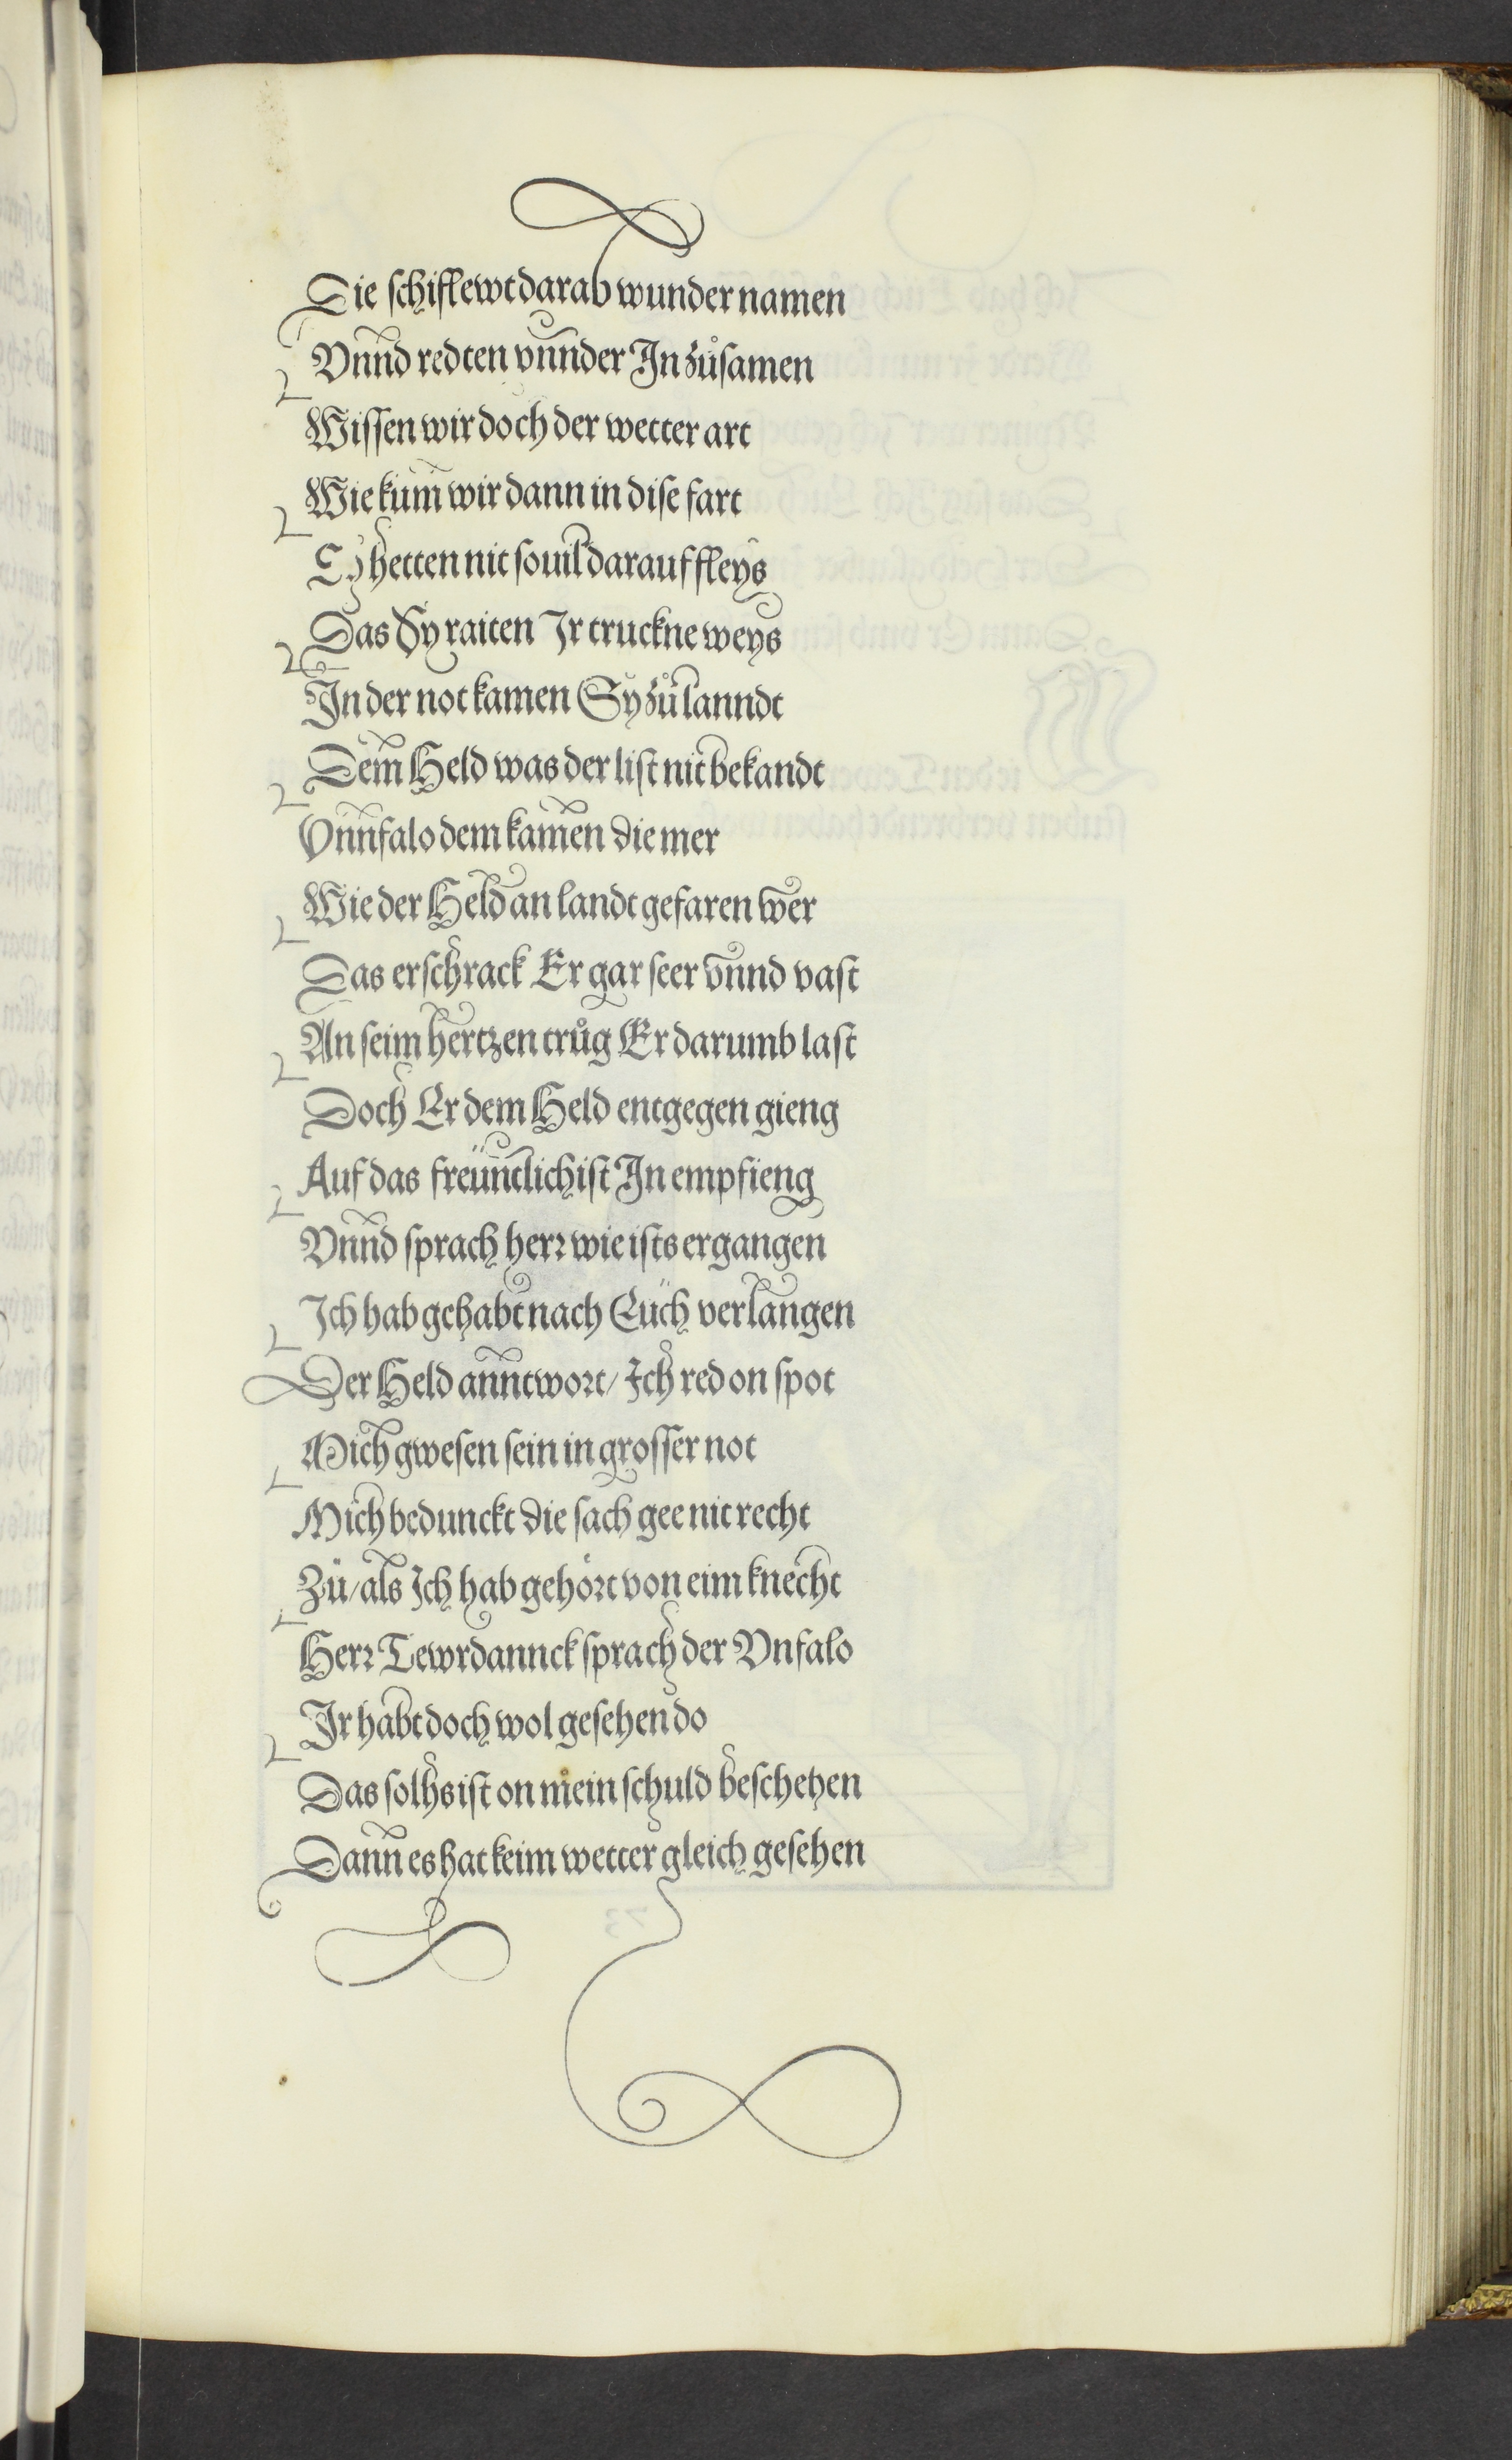 Die schifflewt darab wunder namen
Vnnd redten vnnder In zůsamen
Wissen wir doch der wetter art
Wie kům̃ wir dann in dise fart
Sy hetten nit souil darauf fleys
Das Sy raiten Ir truckne weys
In der not kamen Sy zů lanndt
Dem Held was der list nit bekandt
Vnnfalo dem kamen die mer
Wie der Held an landt gefaren wer
Das erschrack Er gar seer vnnd vast
An seim hertzen trůg Er darumb last
Doch Er dem Held entgegen gieng
Auf das freüntlichist In empfieng
Vnnd sprach herr wie ists ergangen
Ich hab gehabt nach Eüch verlangen
Der Held anntwort/ Ich red on spot
Mich gwesen sein in grosser not
Mich bedunckt die sach gee nit recht
Zů/ als Ich hab gehört von eim knecht
Herr Tewrdannck sprach der Vnfalo
Ir habt doch wol gesehen do
Das solhs ist on mein schuld beschehen
Dann es hat keim wetter gleich gesehen